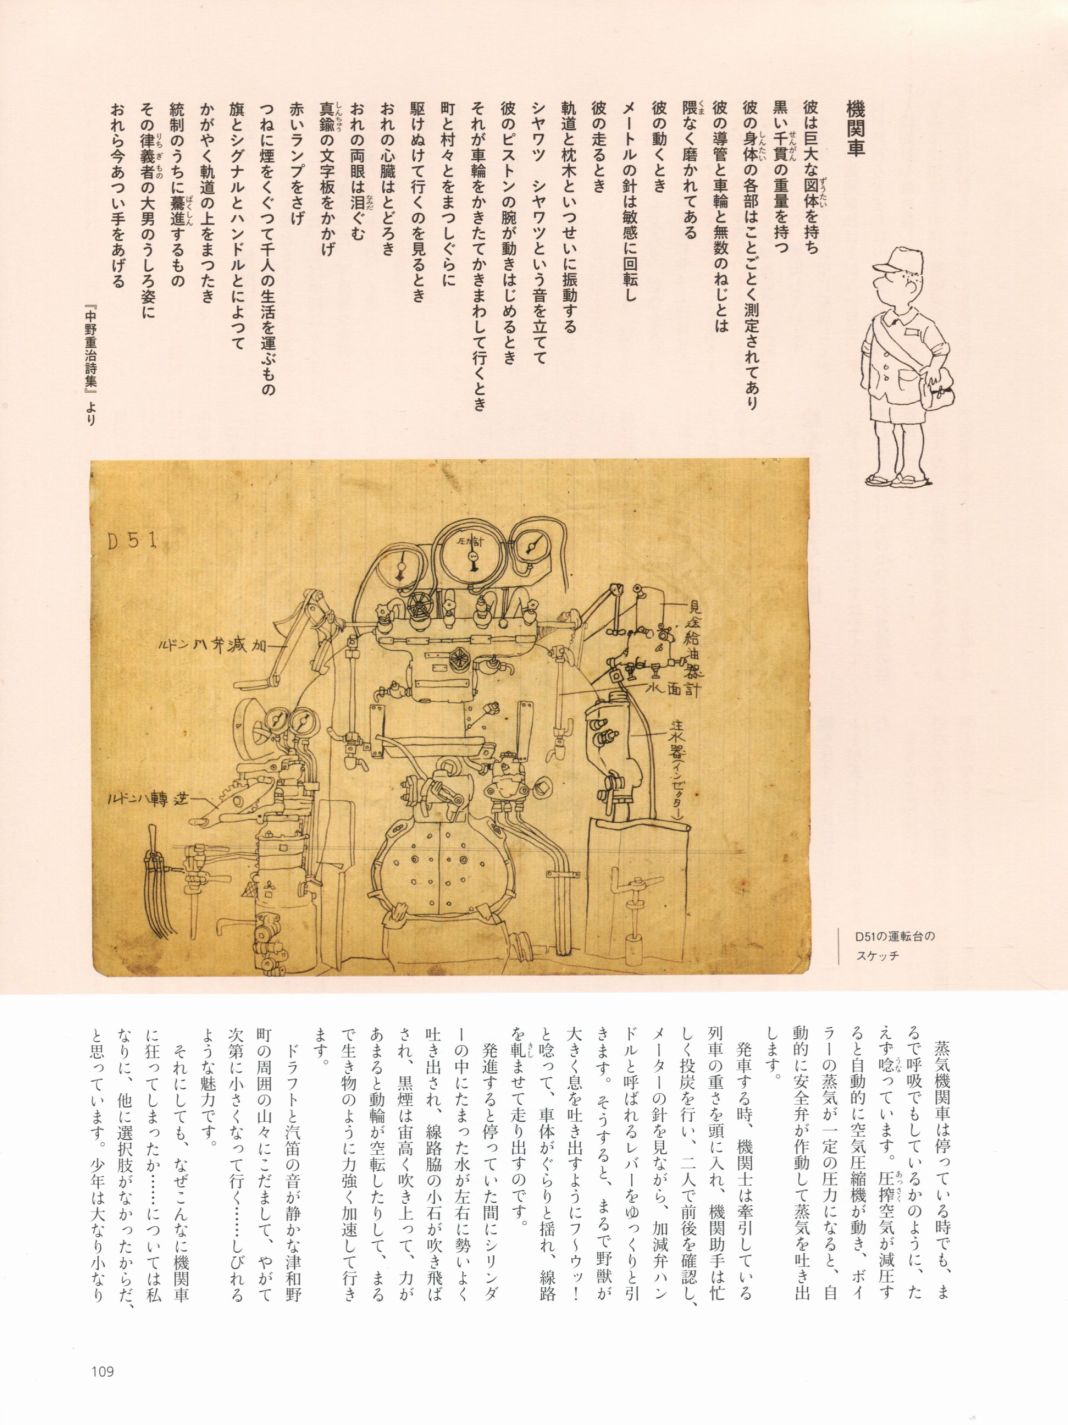 機関車
彼は巨大な図体を持ち
黒い千貫の重量を持つ
彼の身体の各部はことごとく測定されてあり
彼の導管と車輪と無数のねじとは
隈なく磨かれてある
彼の動くとき
メートルの針は敏感に回転し
彼の走るとき
軌道と枕木といつせいに振動する
シヤワツ シヤワツという音を立てて
彼のピストンの腕が動きはじめるとき
それが車輪をかきたてかきまわして行くとき
町と村々とをまつしぐらに
駆けぬけて行くのを見るとき
おれの心臓はとどろき
おれの両眼は泪ぐむ
真鍮の文字板をかかげ
赤いランプをさげ
つねに煙をくぐつて千人の生活を運ぶもの
旗とシグナルとハンドルとによつて
かがやく軌道の上をまつたき
統制のうちに驀進するもの
その律義者の大男のうしろ姿に
おれら今あつい手をあげる
『中野重治詩集』より
D51
圧力計
ルドンハ弁減加
見送給油器
水面計
注水器(インゼクター)
ルドンハ轉逆
D51の運転台の
スケッチ
蒸気機関車は停っている時でも、ま
るで呼吸でもしているかのように、た
えず唸っています。圧搾空気が減圧す
ると自動的に空気圧縮機が動き、ボイ
ラーの蒸気が一定の圧力になると、自
動的に安全弁が作動して蒸気を吐き出
します。
発車する時、機関士は牽引している
列車の重さを頭に入れ、機関助手は忙
しく投炭を行い、二人で前後を確認し、
メーターの針を見ながら、加減弁ハン
ドルと呼ばれるレバーをゆっくりと引
きます。そうすると、まるで野獣が
大きく息を吐き出すようにフ〜ウッ！
と唸って、車体がぐらりと揺れ、線路
を軋ませて走り出すのです。
発進すると停っていた間にシリンダ
ーの中にたまった水が左右に勢いよく
吐き出され、線路脇の小石が吹き飛ば
され、黒煙は宙高く吹き上って、力が
あまると動輪が空転したりして、まる
で生き物のように力強く加速して行き
ます。
ドラフトと汽笛の音が静かな津和野
町の周囲の山々にこだまして、やがて
次第に小さくなって行く……しびれる
ような魅力です。
それにしても、なぜこんなに機関車
に狂ってしまったか………については私
なりに、他に選択肢がなかったからだ、
と思っています。少年は大なり小なり
109